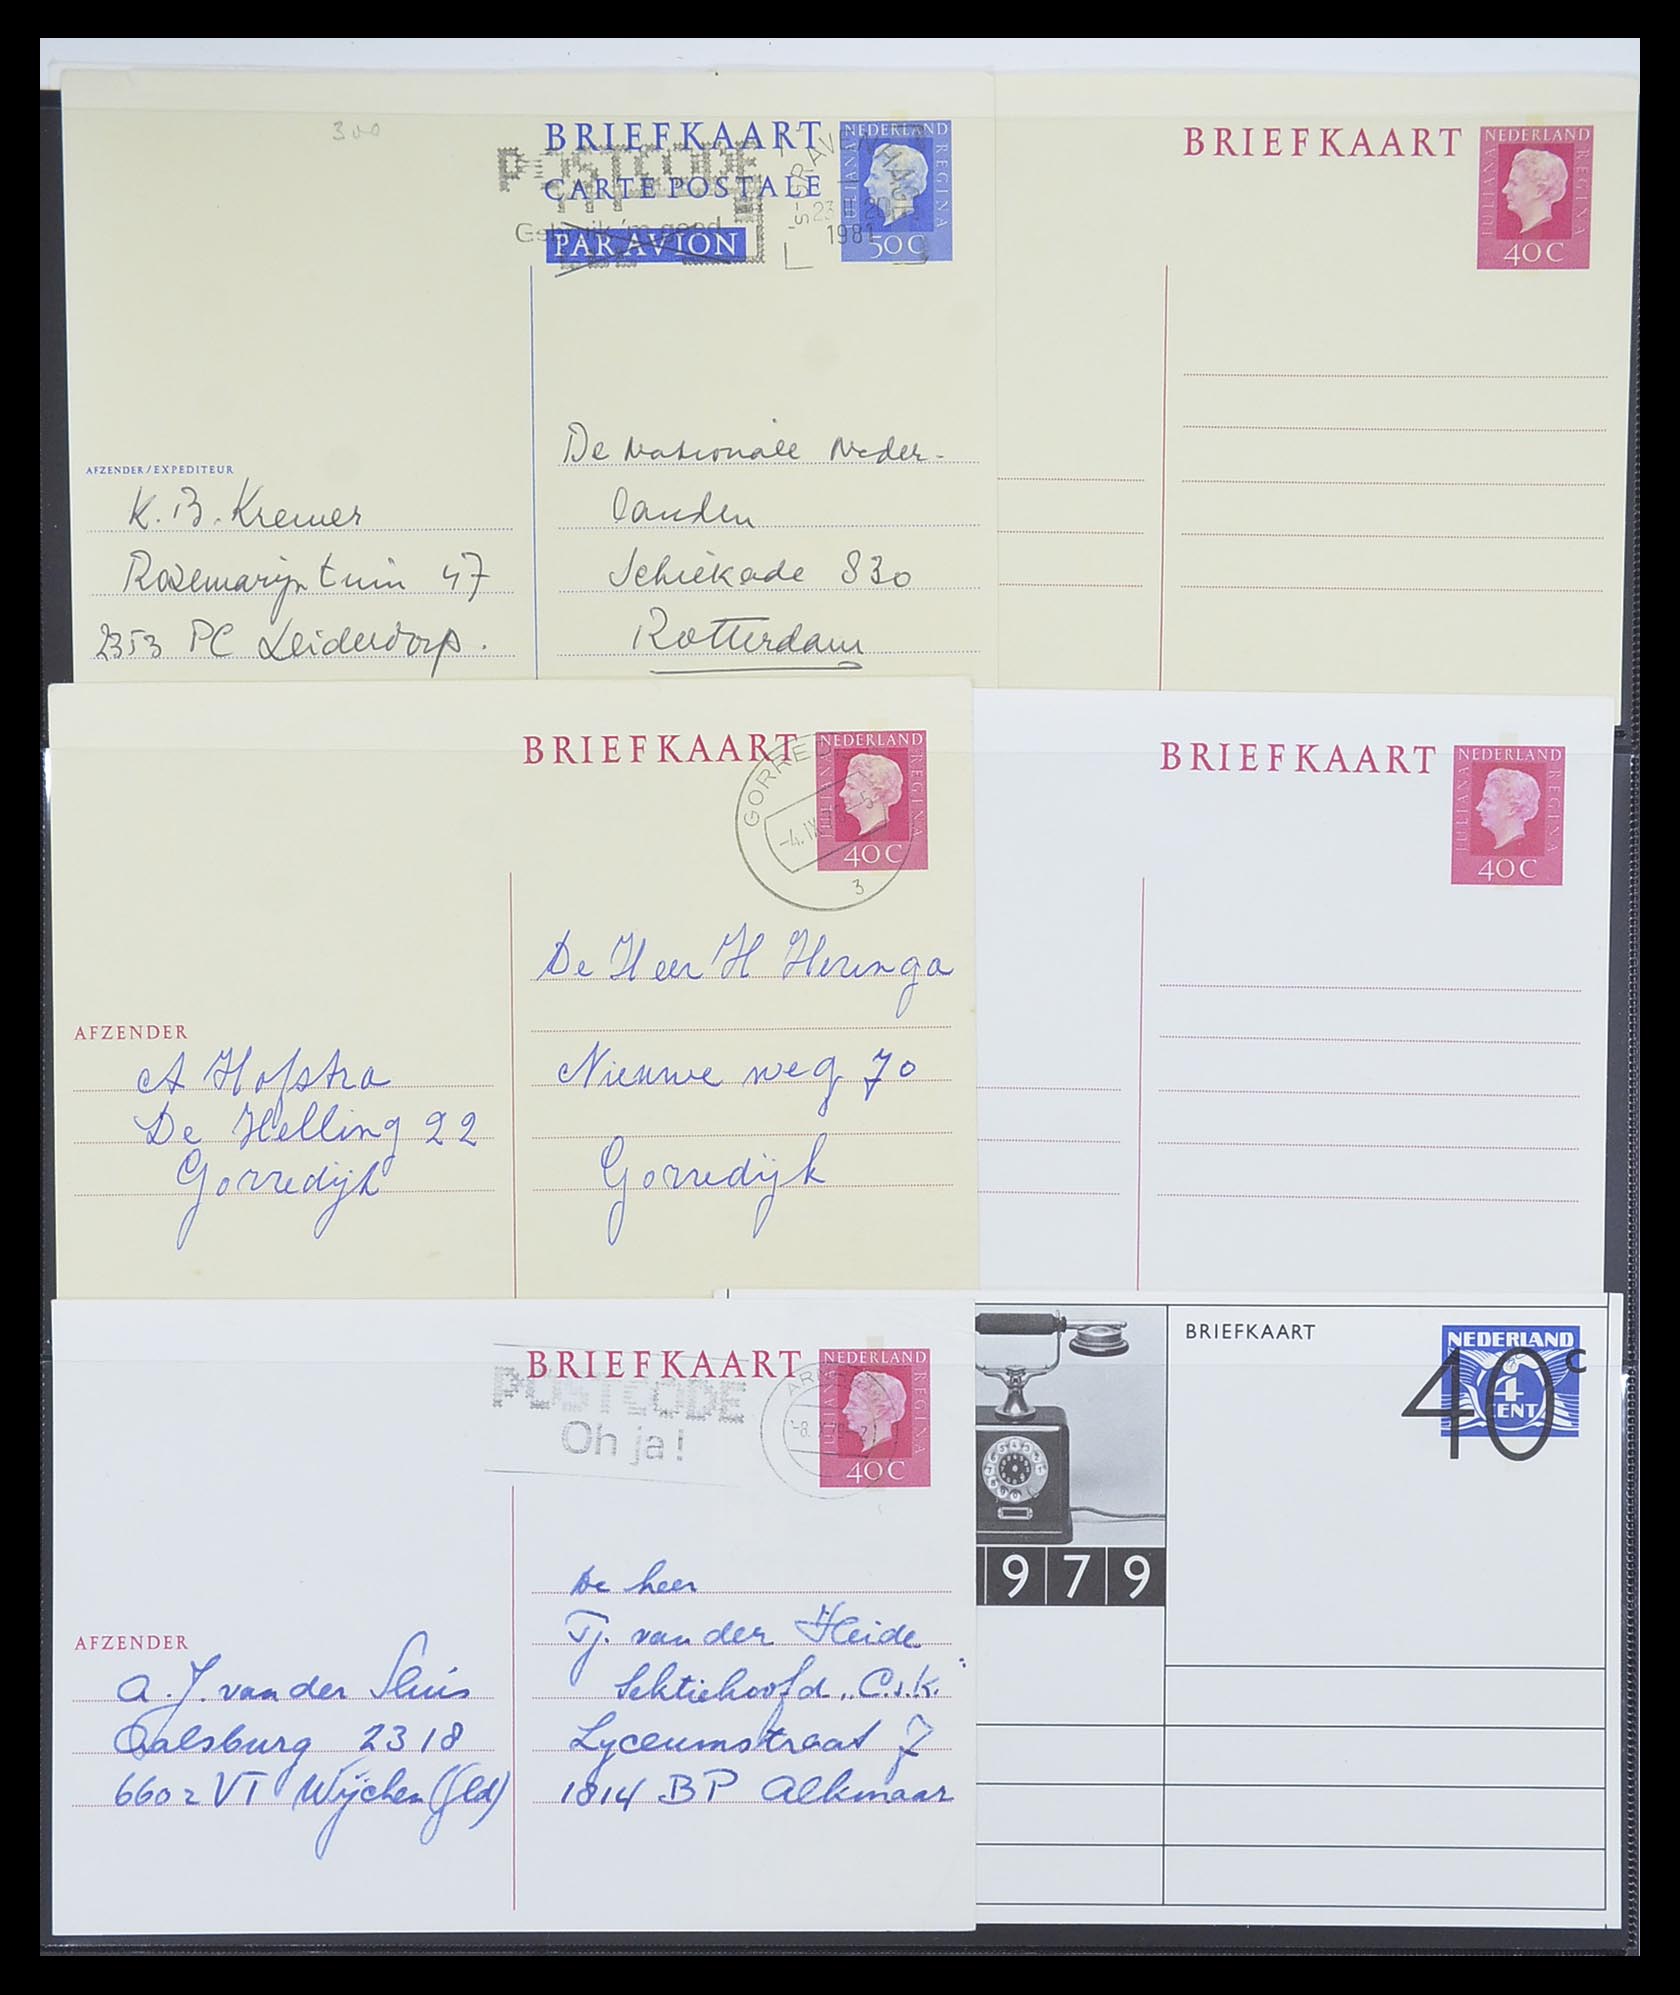 300
BRIEFKAART
CARTE POSTALE
PAR AVION
POSTCODE
Gebruik 'm goed
'S-GRAVENHAGE
1981
NEDERLAND
JULIANA REGINA
50 C
AFZENDER / EXPEDITEUR
K. B. Kremer
Rozemarijntuin 47
2353 PC Leiderdorp.
De Nationale Neder-
landen
Schiekade 830
Rotterdam
BRIEFKAART
NEDERLAND
JULIANA REGINA
40 C
BRIEFKAART
NEDERLAND
JULIANA REGINA
40 C
GORREDIJK
3
AFZENDER
A Hofstra
De Helling 22
Gorredijk
De Heer H Heringa
Nieuwe weg 70
Gorredijk
BRIEFKAART
NEDERLAND
JULIANA REGINA
40 C
BRIEFKAART
POSTCODE
Oh ja!
NEDERLAND
JULIANA REGINA
40 C
AFZENDER
A. J. van der Sluis
Aalsburg 2318
6602 VT Wijchen (Gld)
De heer
Tj. van der Heide
Sektiehoofd „C.s.K."
Lyceumstraat 7
1814 BP Alkmaar
979
BRIEFKAART
NEDERLAND
4
CENT
40c